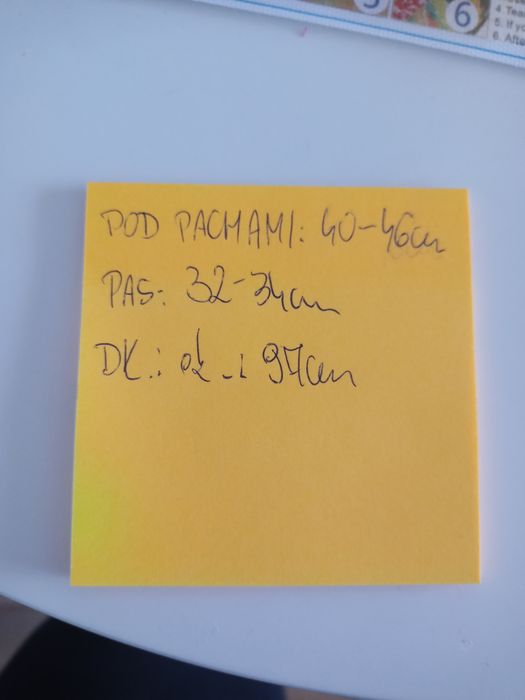 5 6
4 Tea
5. If yo
6. Afte
POD PACHAMI: 40-46cm
PAS: 32-34cm
DŁ.: ok. 97cm